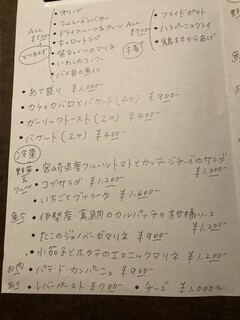 ・オリーブ
・フライドポテト
・ハラペーニョフライ
・鶏ももからあげ
・ドライフルーツ&ナッツ
・キャロットラペ
・いわしのコンフィ
ALL ¥500-
ALL ¥700-
・あて盛り ¥1.000-
・カチョカバロとバゲット(4ヶ) ¥900-
・ガーリックトースト(2ヶ) ¥400-
・バゲット(2ヶ) ¥400-
冷菜
野菜&フルーツ
・宮崎県産フルーツトマトとカッテージチーズのサラダ ¥1.000-
・コブサラダ ¥1.200-
・いちごとブッラータ ¥1.600-
魚介
・伊勢産真鯛のカルパッチョ柑橘ソース ¥1.200-
・たこのジェノベーゼマリネ ¥900-
・水茄子とホタテのエスニックマリネ ¥1.200-
お肉
・パテ・ド・カンパーニュ ¥900-
・レバーペースト ¥700-
・チーズ ¥1.000-